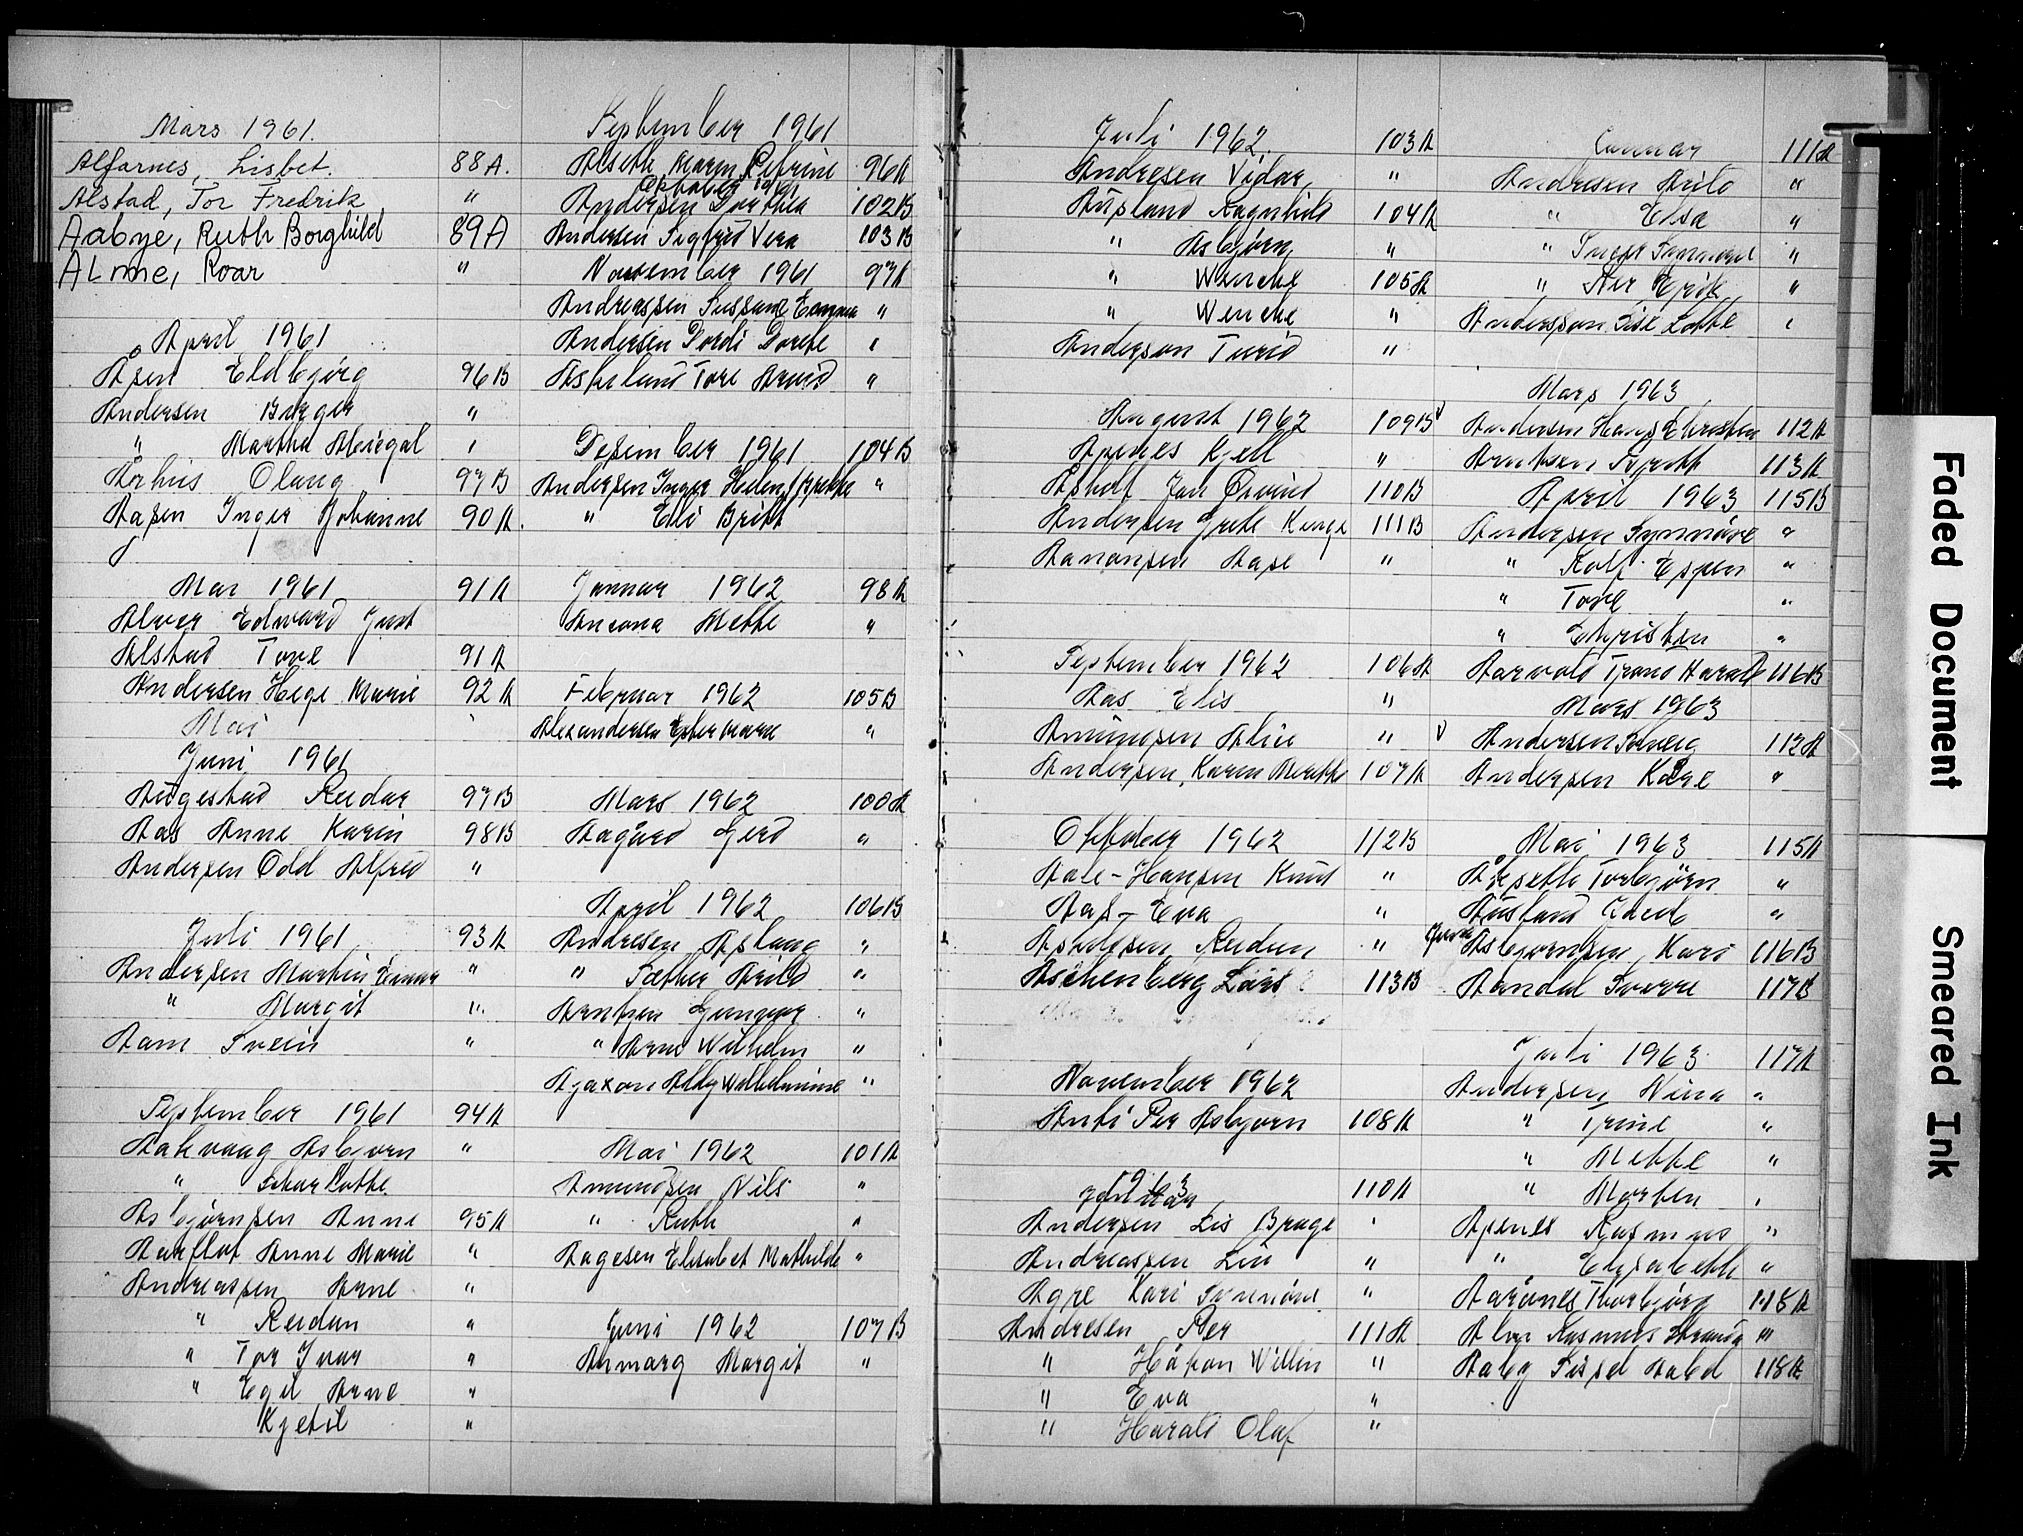 Mars 1961.
Alfarnes, Lisbet. 88 A.
Alstad, Tor Fredrik "
Aabye, Ruth Borghild 89 A
Alme, Roar "
April 1961
Åsen Eldbjørg 96 B
Andersen Birger "
" Martha Abiegal "
Århus Olaug 97 B
Aasen Inger Johanne 90 A.
Mai 1961 91 A
Alver Edward Just
Alstad Tove 91 A
Andersen Hege Marie 92 A
Mai
Juni 1961
Augestad Reidar 97 B
Aas Anne Karin 98 B
Andersen Odd Alfred "
Juli 1961 93 A
Andersen Martin Einar "
" Margit "
Aam Svein "
September 1961 94 A
Aakvaag Asbjørn "
"
Asbjørnsen Anne 95 A
Aarflot Anne Marie "
Andreassen Arne "
" Reidun "
" Tor Ivar "
" Egil Arne "
Kjetil "
September 1961
Alseth Maren Petrine 96 A
Oktober 1961
Andersen Dorthea 102 B
Andersen Sigfrid Vera 103 B
November 1961 97 A
Andreassen Susanne Emma "
Andersen Dordi Dorthe "
Askeland Tore Arvid "
Desember 1961 104 B
Andersen Inger Helen "
" Eli Britt
Januar 1962 98 A
Ancona Mette "
Februar 1962 105 B
Alexandersen Ester Marie "
Mars 1962 100 A
Aagård Gerd "
April 1962 106 B
Andresen Aslaug "
" Sæther Arild "
Arntzen Gunvor "
" Arne Wilhelm "
Ajaxon Aldy Wilhelmine "
Mai 1962 101 A
Amundsen Nils "
" Ruth "
Aagesen Elisabet Mathilde "
Juni 1962 107 B
Anmarg Margit "
Juli 1962. 103 A
Andresen Vidar "
Ausland Ragnhild 104 A
" Asbjørn "
" Wenche 105 A
" Wenche "
Anderson Turid "
August 1962 109 B
Apenes Kjell "
Asholf Jan Øivind 110 B
Andersen Grete 111 B
Aanonsen Aase "
September 1962 106 A
Aas Elis "
Amundsen Alice "
Andersen, Karen Merethe 107 A
Oktober 1962 112 B
Aale-Hansen Knut "
Aas - Eva "
Asholsen Reidun "
Aschenberg Lars 113 B
November 1962
Anti Per Asbjørn 108 A
1963
Januar 110 A
Andersen Lis Brage "
Andreassen Liv "
Agre Kari Synnøve "
Andresen Per 111 A
" Håkon Willin "
" Eva "
" Harald Olaf "
Januar 111 A
Andresen Arild "
" Elsa "
" "
" Per Erik "
Andersson Lise Lotte "
Mars 1963
Andersen Hans Christen 112 A
Arntsen Synøtt 113 A
April 1963 115 B
Andersen Synnøve "
" Rolf Espen "
" Tove "
" Christen "
Aarvold Trond Harald 116 B
Mars 1963
Andersen Solveig 112 A
Andersen Kåre "
Mai 1963 115 A
Årseth Torbjørn "
Ausland Jacob "
Juni Asbjørnsen, Kari 116 B
Aandal Sverre 117 B
Juli 1963 117 A
Andersen, Nina "
" Trine "
" Mette "
" Morten "
Apenes Rasmus "
" Elisabeth "
Aarånes Thorbjørg 118 A
Alver Rasmus Strand "
Aaby Sissel Aabel 118 A
Faded Document
Smeared Ink